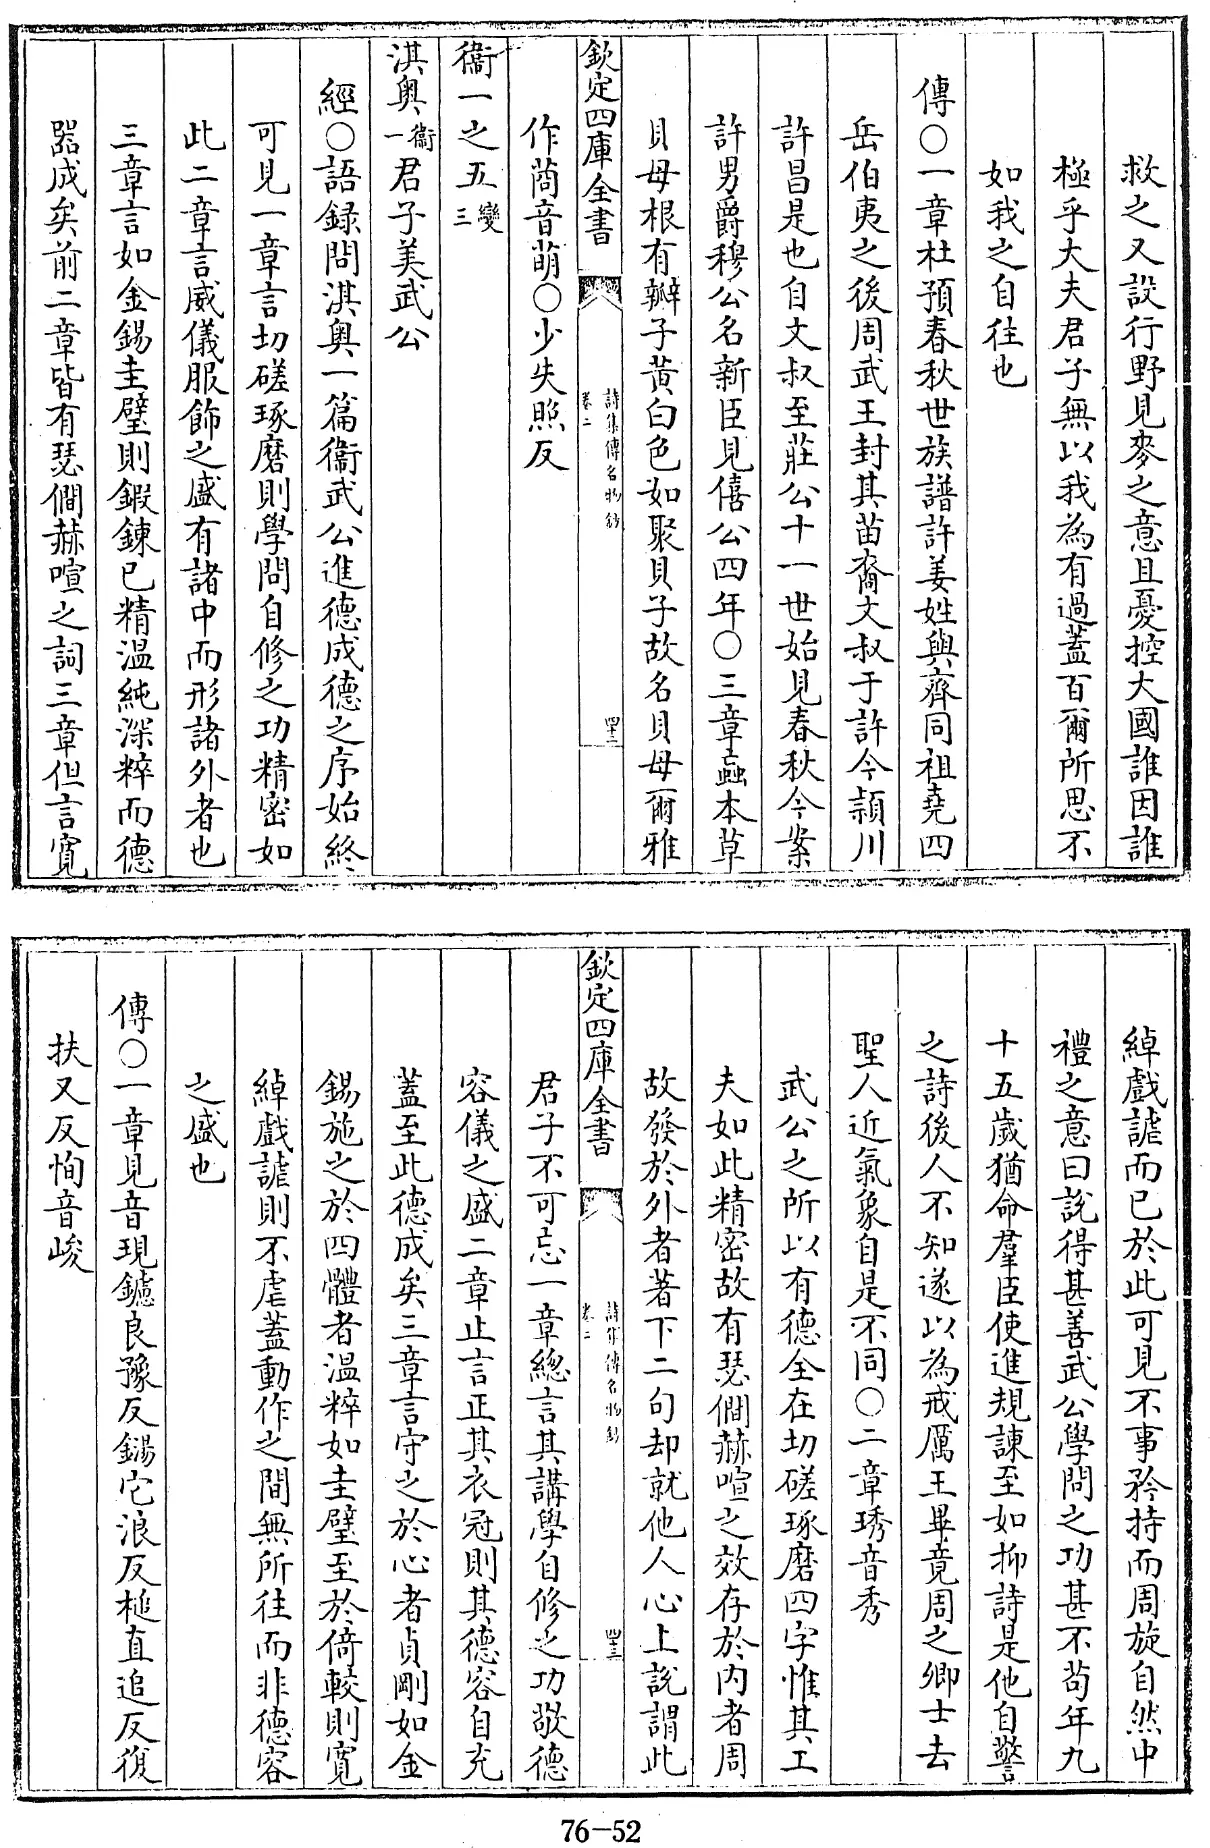 救之又設行野見麥之意且憂控大國誰因誰
極乎大夫君子無以我為有過蓋百爾所思不
如我之自往也
傳○一章杜預春秋世族譜許姜姓與齊同祖堯四
岳伯夷之後周武王封其苗裔文叔于許今潁川
許昌是也自文叔至莊公十一世始見春秋今案
許男爵穆公名新臣見僖公四年○三章蝱本草
貝母根有瓣子黃白色如聚貝子故名貝母爾雅
欽定四庫全書
詩集傳名物鈔
卷二
四十二
作莔音萌○少失照反
衞一之五變三
淇奥衞一君子美武公
經○語録問淇奥一篇衞武公進德成德之序始終
可見一章言切磋琢磨則學問自修之功精密如
此二章言威儀服飾之盛有諸中而形諸外者也
三章言如金錫圭璧則鍜鍊已精温純深粹而德
器成矣前二章皆有瑟僴赫喧之詞三章但言寛
綽戲謔而已於此可見不事矜持而周旋自然中
禮之意曰說得甚善武公學問之功甚不苟年九
十五歲猶命羣臣使進規諫至如抑詩是他自警
之詩後人不知遂以為戒厲王畢竟周之卿士去
聖人近氣象自是不同○二章琇音秀
武公之所以有德全在切磋琢磨四字惟其工
夫如此精密故有瑟僴赫喧之效存於内者周
故發於外者著下二句却就他人心上說謂此
欽定四庫全書
詩集傳名物鈔
卷二
四十三
君子不可忘一章總言其講學自修之功敬德
容儀之盛二章止言正其衣冠則其德容自充
蓋至此德成矣三章言守之於心者貞剛如金
錫施之於四體者温粹如圭璧至於倚較則寛
綽戲謔則不虐蓋動作之間無所往而非德容
之盛也
傳○一章見音現鑢良豫反鐋它浪反槌直追反復
扶又反恂音峻
76-52